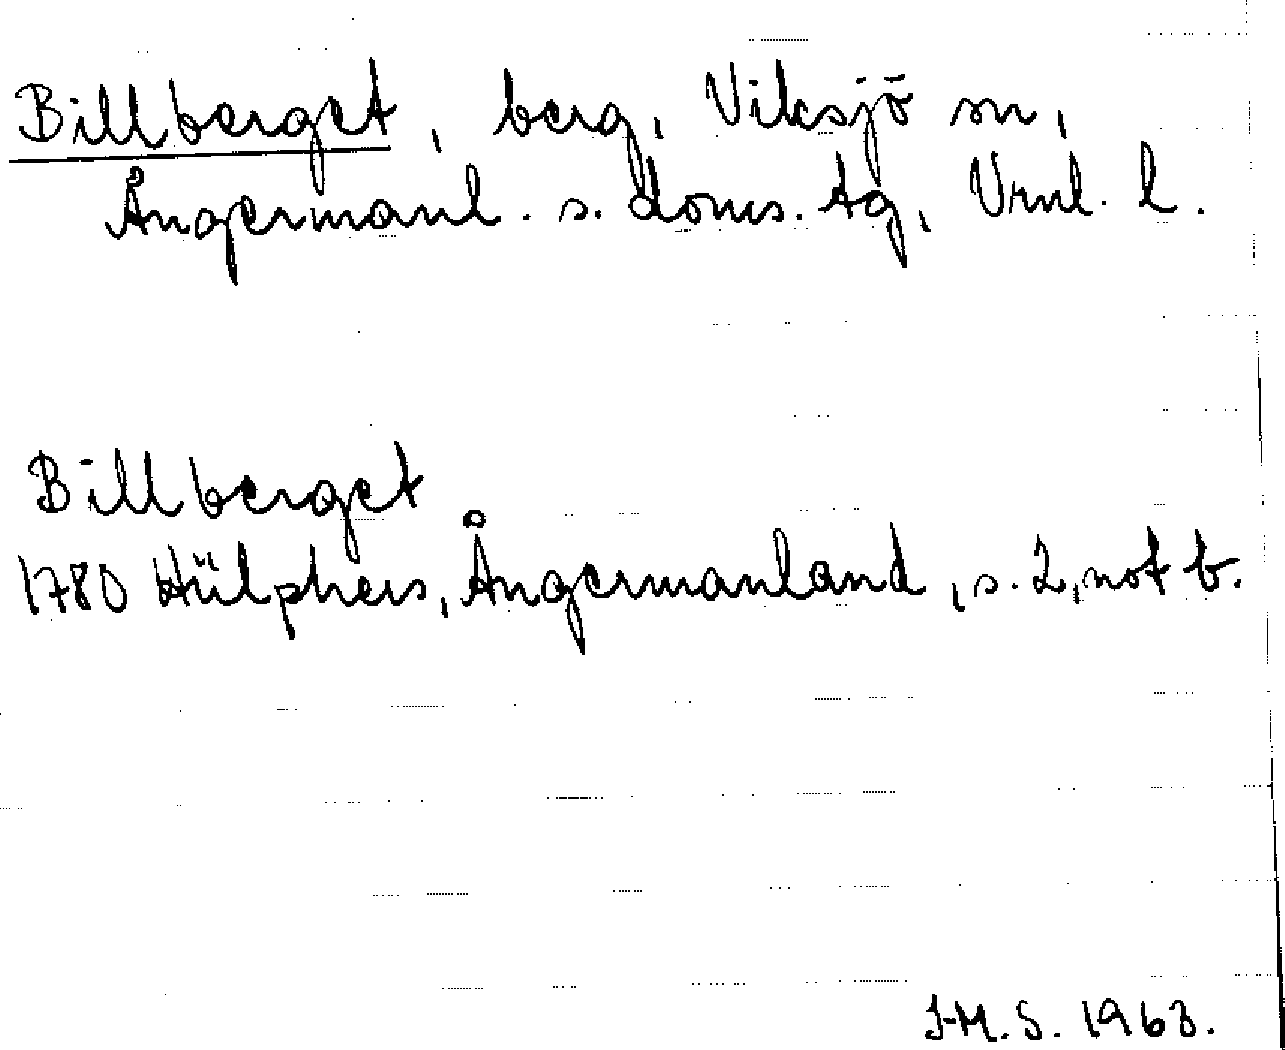 Billberget, berg, Viksjö sn,
Ångermanl. s. doms. tg, Vrnl. l.
Billberget
1780 Hülphers, Ångermanland, s. 2, not b.
J-M. S. 1963.